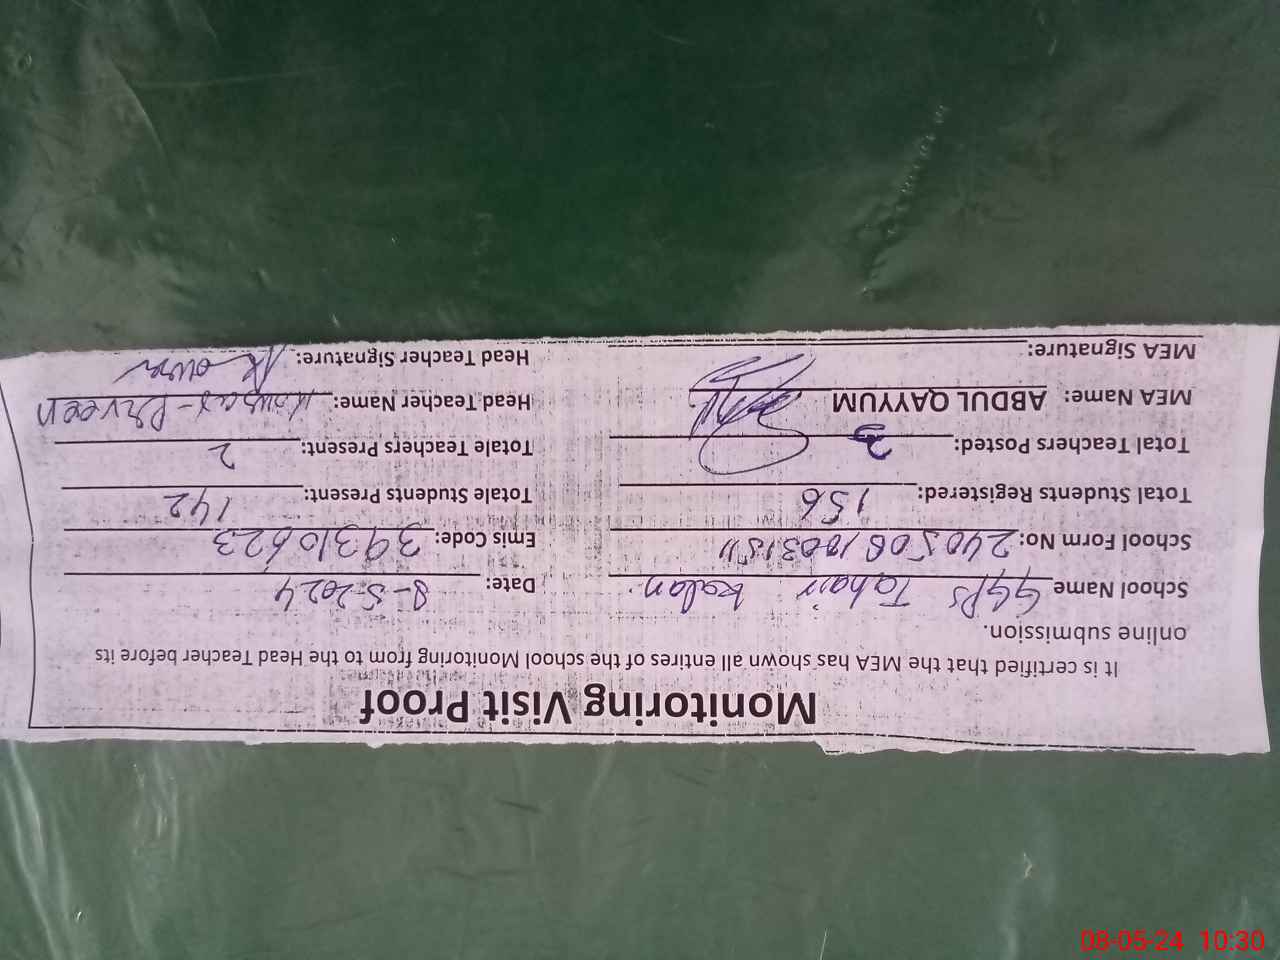 Monitoring Visit Proof
It is certified that the MEA has shown all entires of the school Monitoring from to the Head Teacher before its
online submission.
School Name GGPS Tahir kalan Date: 8-5-2024
School Form No: Emis Code: 39310623
Total Students Registered: 156 Totale Students Present: 142
Total Teachers Posted: 3 Totale Teachers Present: 2
MEA Name: ABDUL QAYYUM Head Teacher Name: Kousar-Perveen
MEA Signature: Head Teacher Signature: Kousar
08-05-24 10:30